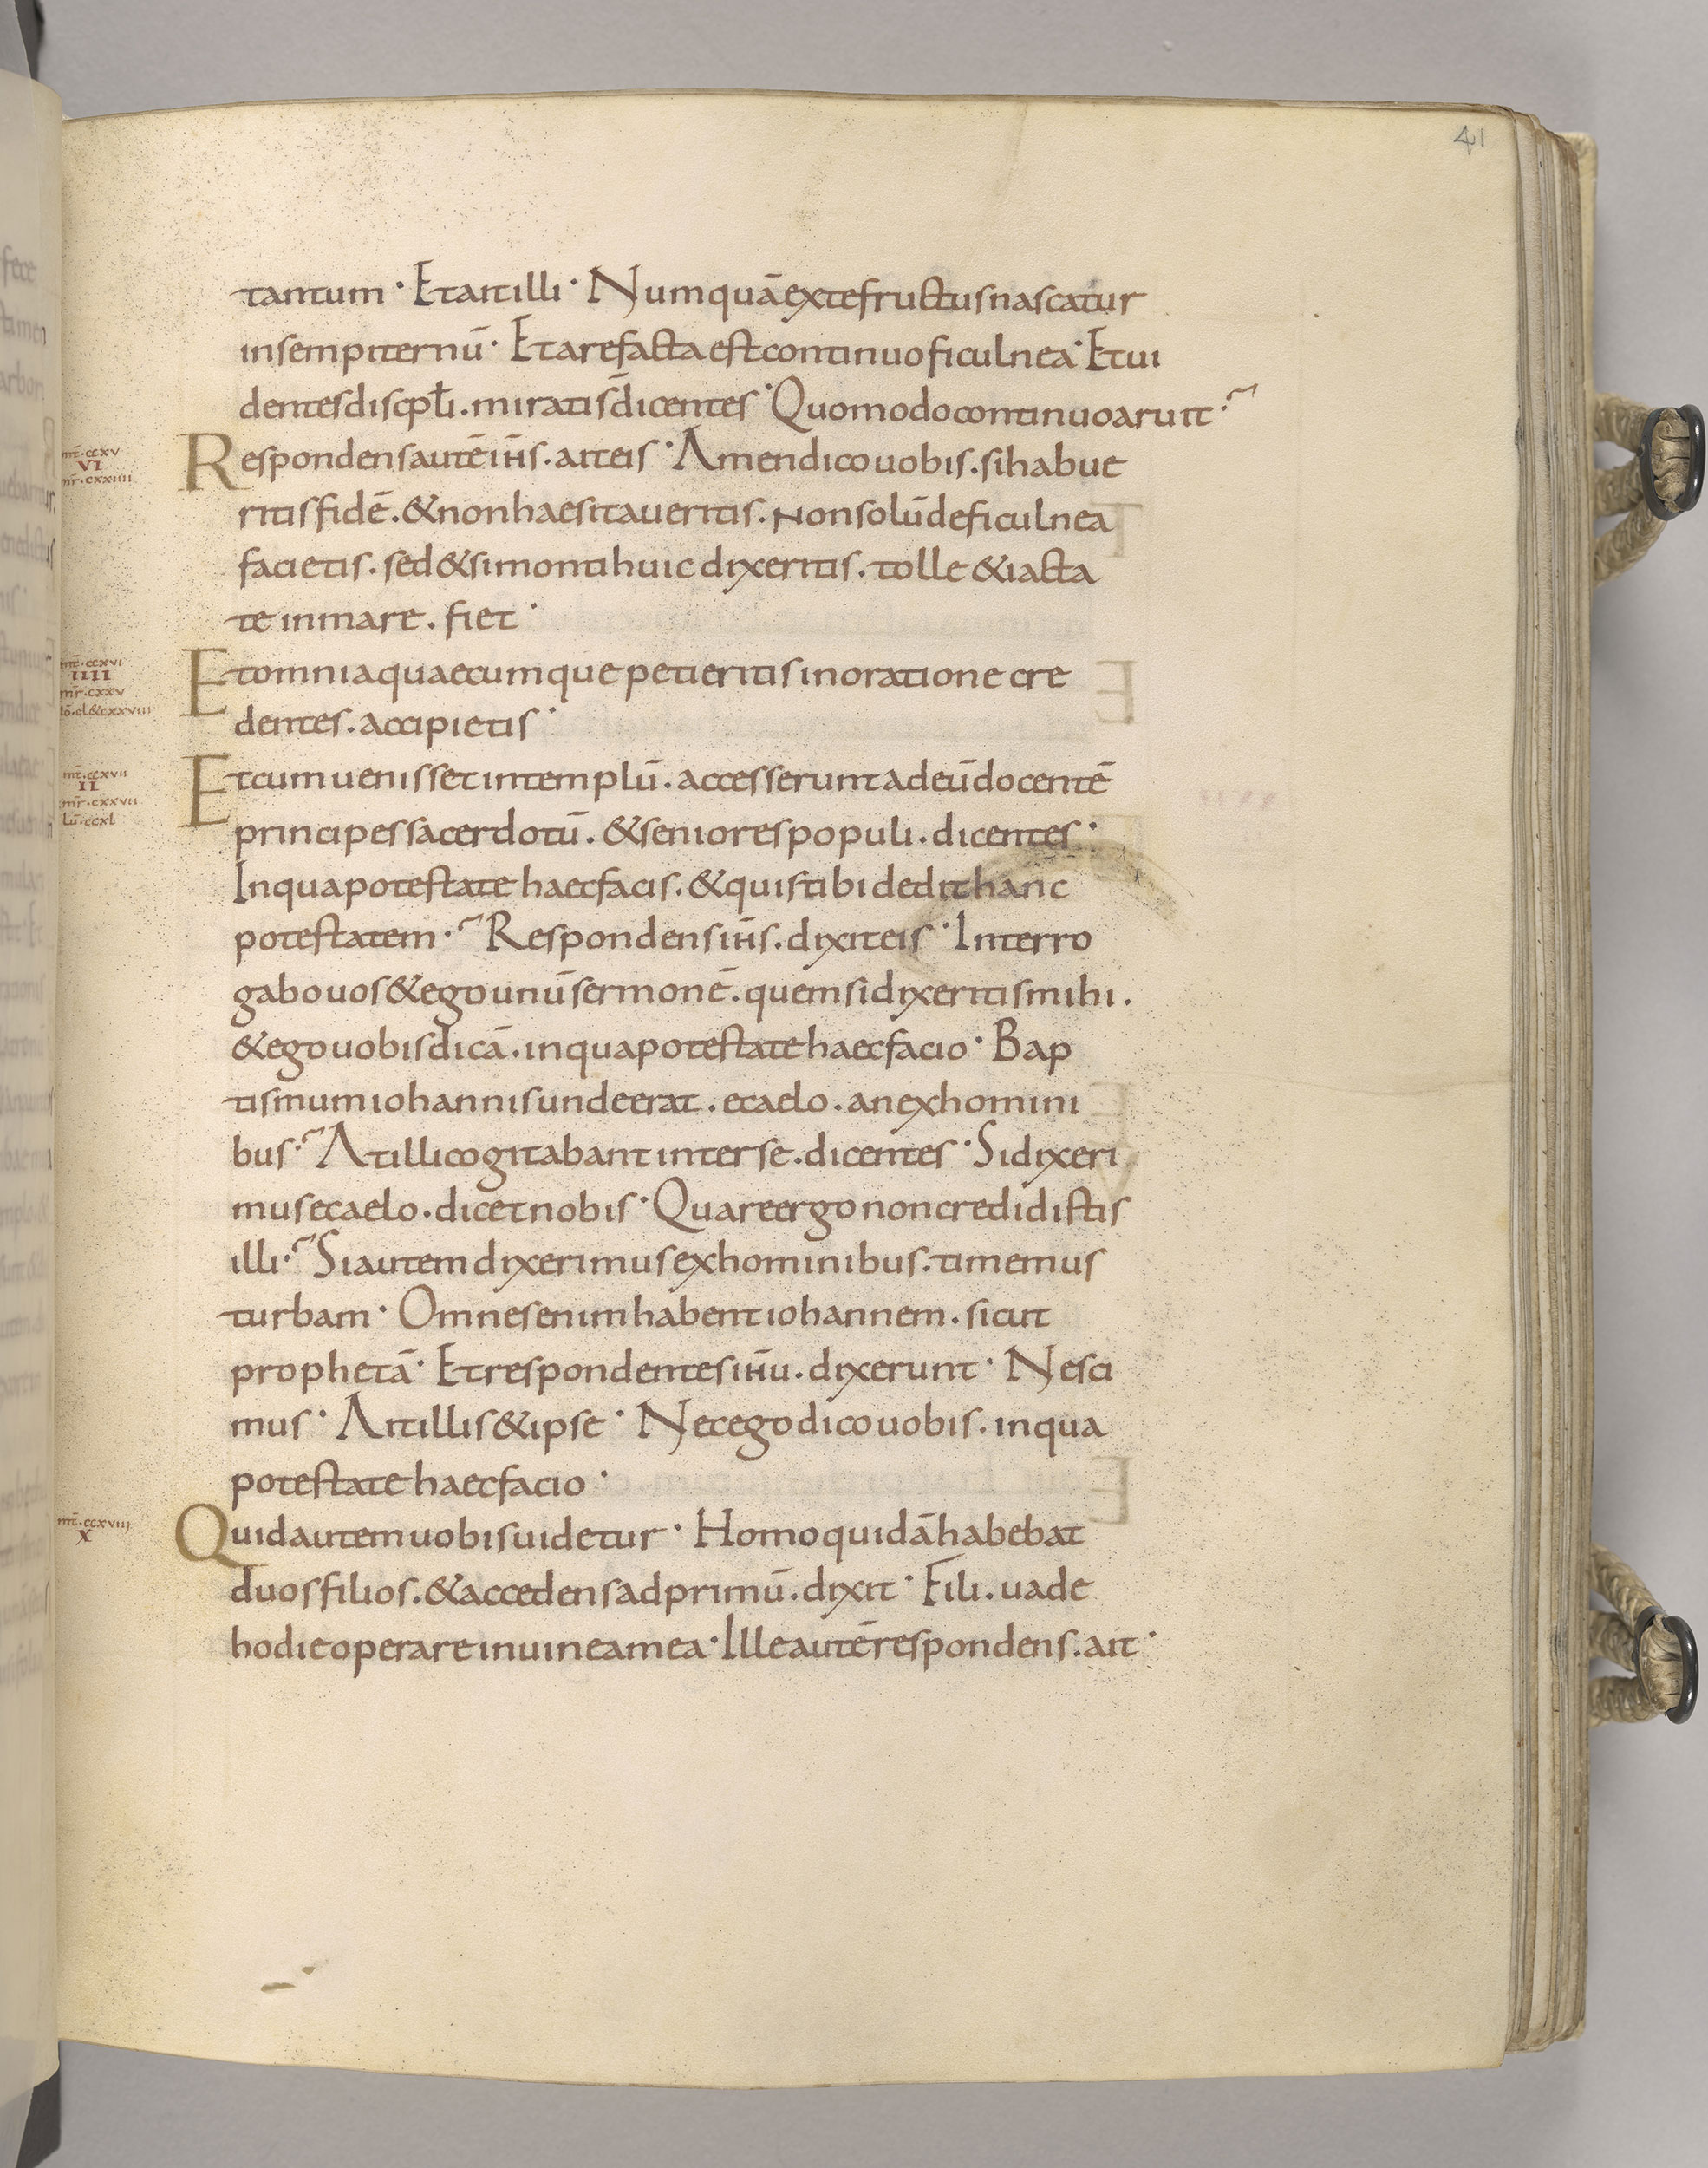 41
tantum · Et ait illi · Numquā ex te fructus nascatur
in sempiternū · Et arefacta est continuo ficulnea · Et ui
dentes discip̄li . mirati s̄ dicentes · Quomodo continuo aruit ·
mt̄ · ccxv
VI
mr̄ · cxxiiii
Respondens autē ih̄s . ait eis · Amen dico uobis . si habue
ritis fidē . & non haesitaueritis . non solū de ficulnea
facietis . sed & si monti huic dixeritis . tolle & iacta
te in mare . fiet ·
mt̄ · ccxvi
IIII
mr̄ · cxxv
Et omnia quaecumque petieritis in oratione cre
dentes . accipietis ·
mt̄ · ccxvii
II
mr̄ · cxxvii
Lū · ccxl
Et cum uenisset in templū . accesserunt ad eū docentē
principes sacerdotū . & seniores populi . dicentes ·
In qua potestate haec facis . & quis tibi dedit hanc
potestatem · Respondens ih̄s . dixit eis · Interro
gabo uos & ego unū sermonē . quem si dixeritis mihi .
& ego uobis dicā . in qua potestate haec facio · Bap
tismum iohannis unde erat . e caelo . an ex homini
bus · At illi cogitabant inter se . dicentes · Si dixeri
mus e caelo . dicet nobis · Quare ergo non credidistis
illi · Si autem dixerimus ex hominibus . timemus
turbam · Omnes enim habent iohannem . sicut
prophetā · Et respondentes ih̄u . dixerunt · Nesci
mus · Ait illis & ipse · Nec ego dico uobis . in qua
potestate haec facio ·
mt̄ · ccxviii
X
Quid autem uobis uidetur · Homo quidā habebat
duos filios . & accedens ad primū . dixit · Fili . uade
hodie operare in uinea mea · Ille autē respondens . ait ·